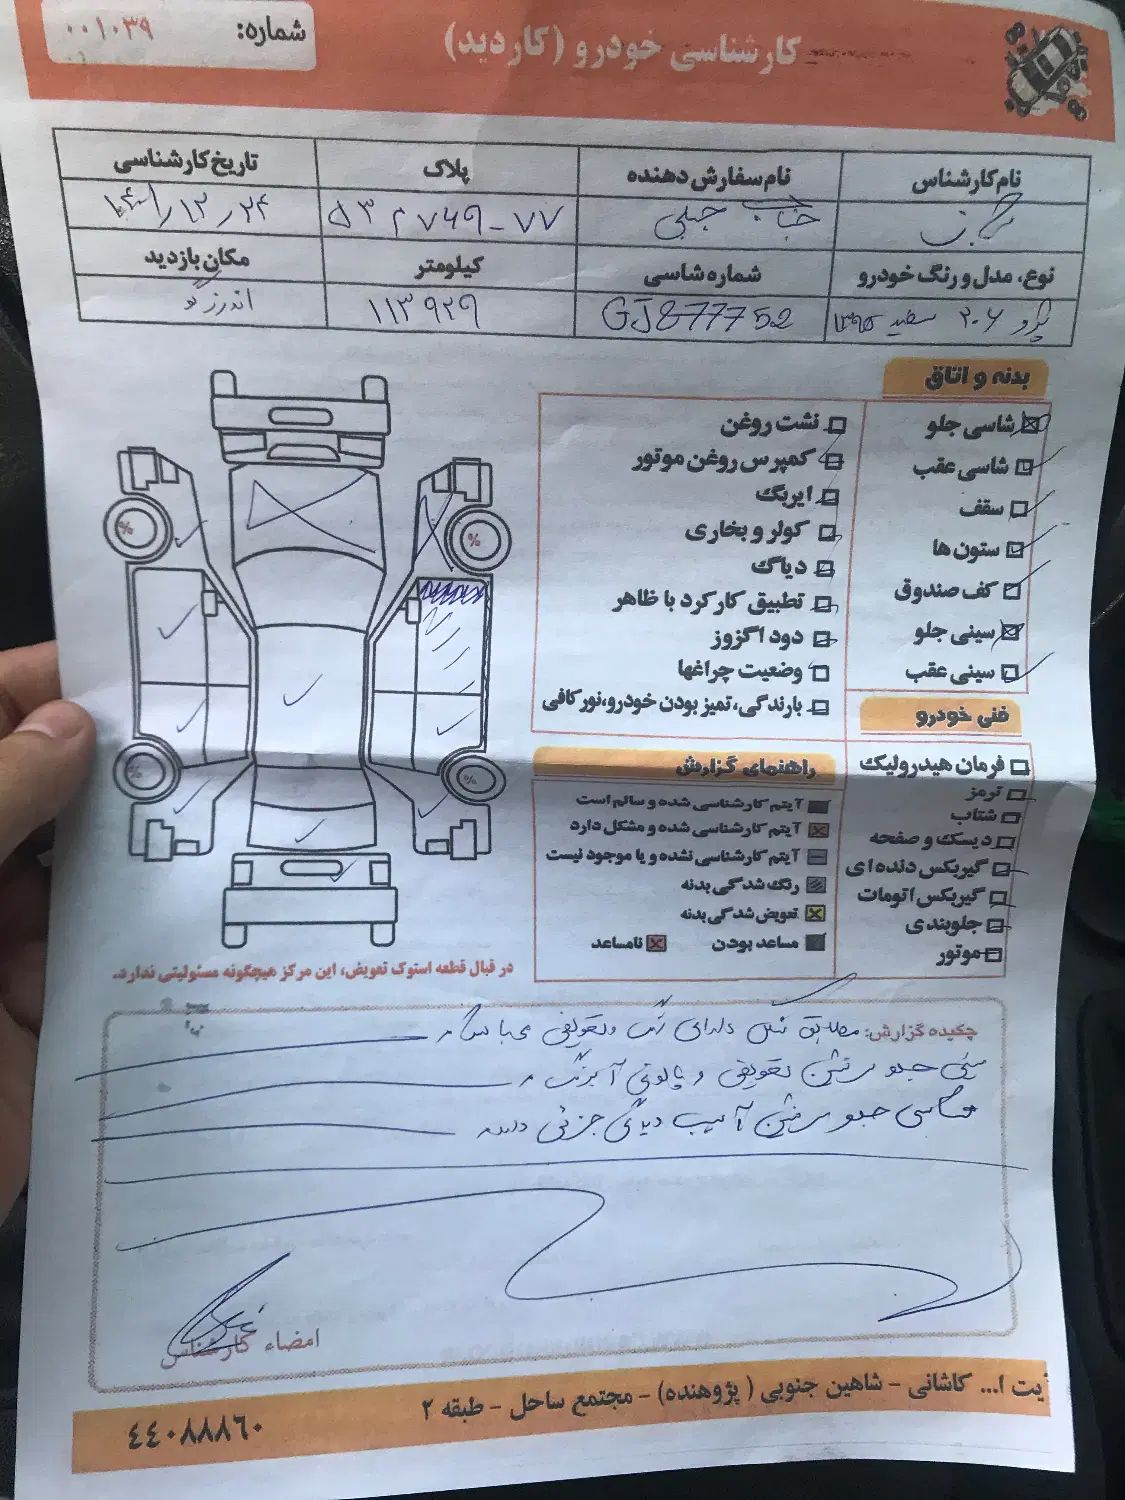 شماره: ۰۰۱۰۳۹
کارشناسی خودرو (کاردید)
نام کارشناس
نام سفارش دهنده
پلاک
تاریخ کارشناسی
جناب جبلی
۵۳م۷۴۹-۷۷
۱۴۰۱/۱۲/۲۴
نوع، مدل و رنگ خودرو
شماره شاسی
کیلومتر
مکان بازدید
پژو ۲۰۶ سفید ۱۳۹۵
GJ877752
۱۱۳۹۲۹
اندرزگو
بدنه و اتاق
شاسی جلو
شاسی عقب
سقف
ستون ها
کف صندوق
سینی جلو
سینی عقب
نشت روغن
کمپرس روغن موتور
ایربگ
کولر و بخاری
دیاگ
تطبیق کارکرد با ظاهر
دود اگزوز
وضعیت چراغها
بارندگی، تمیز بودن خودرو، نورکافی
فنی خودرو
فرمان هیدرولیک
ترمز
شتاب
دیسک و صفحه
گیربکس دنده ای
گیربکس اتومات
جلوبندی
موتور
راهنمای گزارش
آیتم کارشناسی شده و سالم است
آیتم کارشناسی شده و مشکل دارد
آیتم کارشناسی نشده و یا موجود نیست
رنگ شدگی بدنه
تعویض شدگی بدنه
مساعد بودن
نامساعد
%
%
%
%
در قبال قطعه استوک تعویض، این مرکز هیچگونه مسئولیتی ندارد.
چکیده گزارش: مطابق شکل دارای رنگ و تعویض می باشد
سینی جلو تعویض و
شاسی جلو آسیب جزئی دارد
امضاء کارشناس
یت ا... کاشانی - شاهین جنوبی (پژوهنده) - مجتمع ساحل - طبقه ۲
۴۴۰۸۸۸۶۰